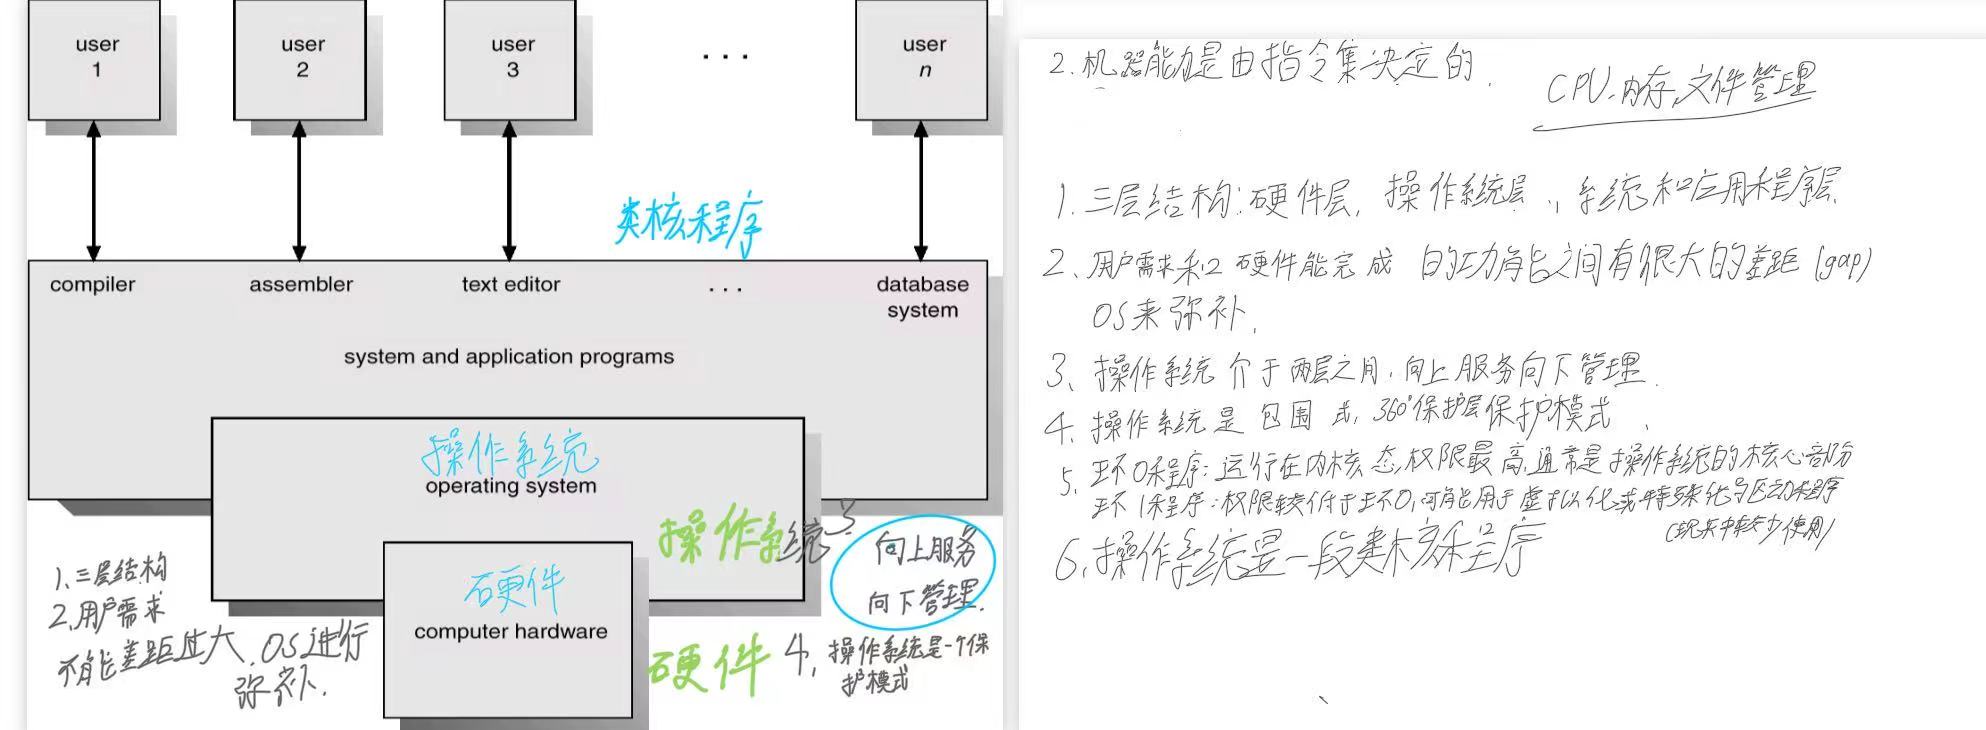 user
1
user
2
user
3
. . .
user
n
类核程序
compiler
assembler
text editor
. . .
database
system
system and application programs
操作系统
operating system
操作系统
3
向上服务
向下管理.
硬件
computer hardware
硬件
1、三层结构
2、用户需求
不能差距过大、OS进行
弥补.
4、操作系统是一个保
护模式
2.机器能力是由指令集决定的.
CPU、内存,文件管理
1.三层结构:硬件层,操作系统层、系统和应用程序层.
2、用户需求和硬件能完成的功能之间有很大的差距(gap)
OS来弥补.
3、操作系统介于两层之间,向上服务向下管理.
4、操作系统是包围式,360°保护层保护模式.
5、环0程序:运行在内核态,权限最高,通常是操作系统的核心部分
环1程序:权限较低于环0,可能用于虚拟化或特殊化驱动程序
(现实中较少使用)
6、操作系统是一段类核程序